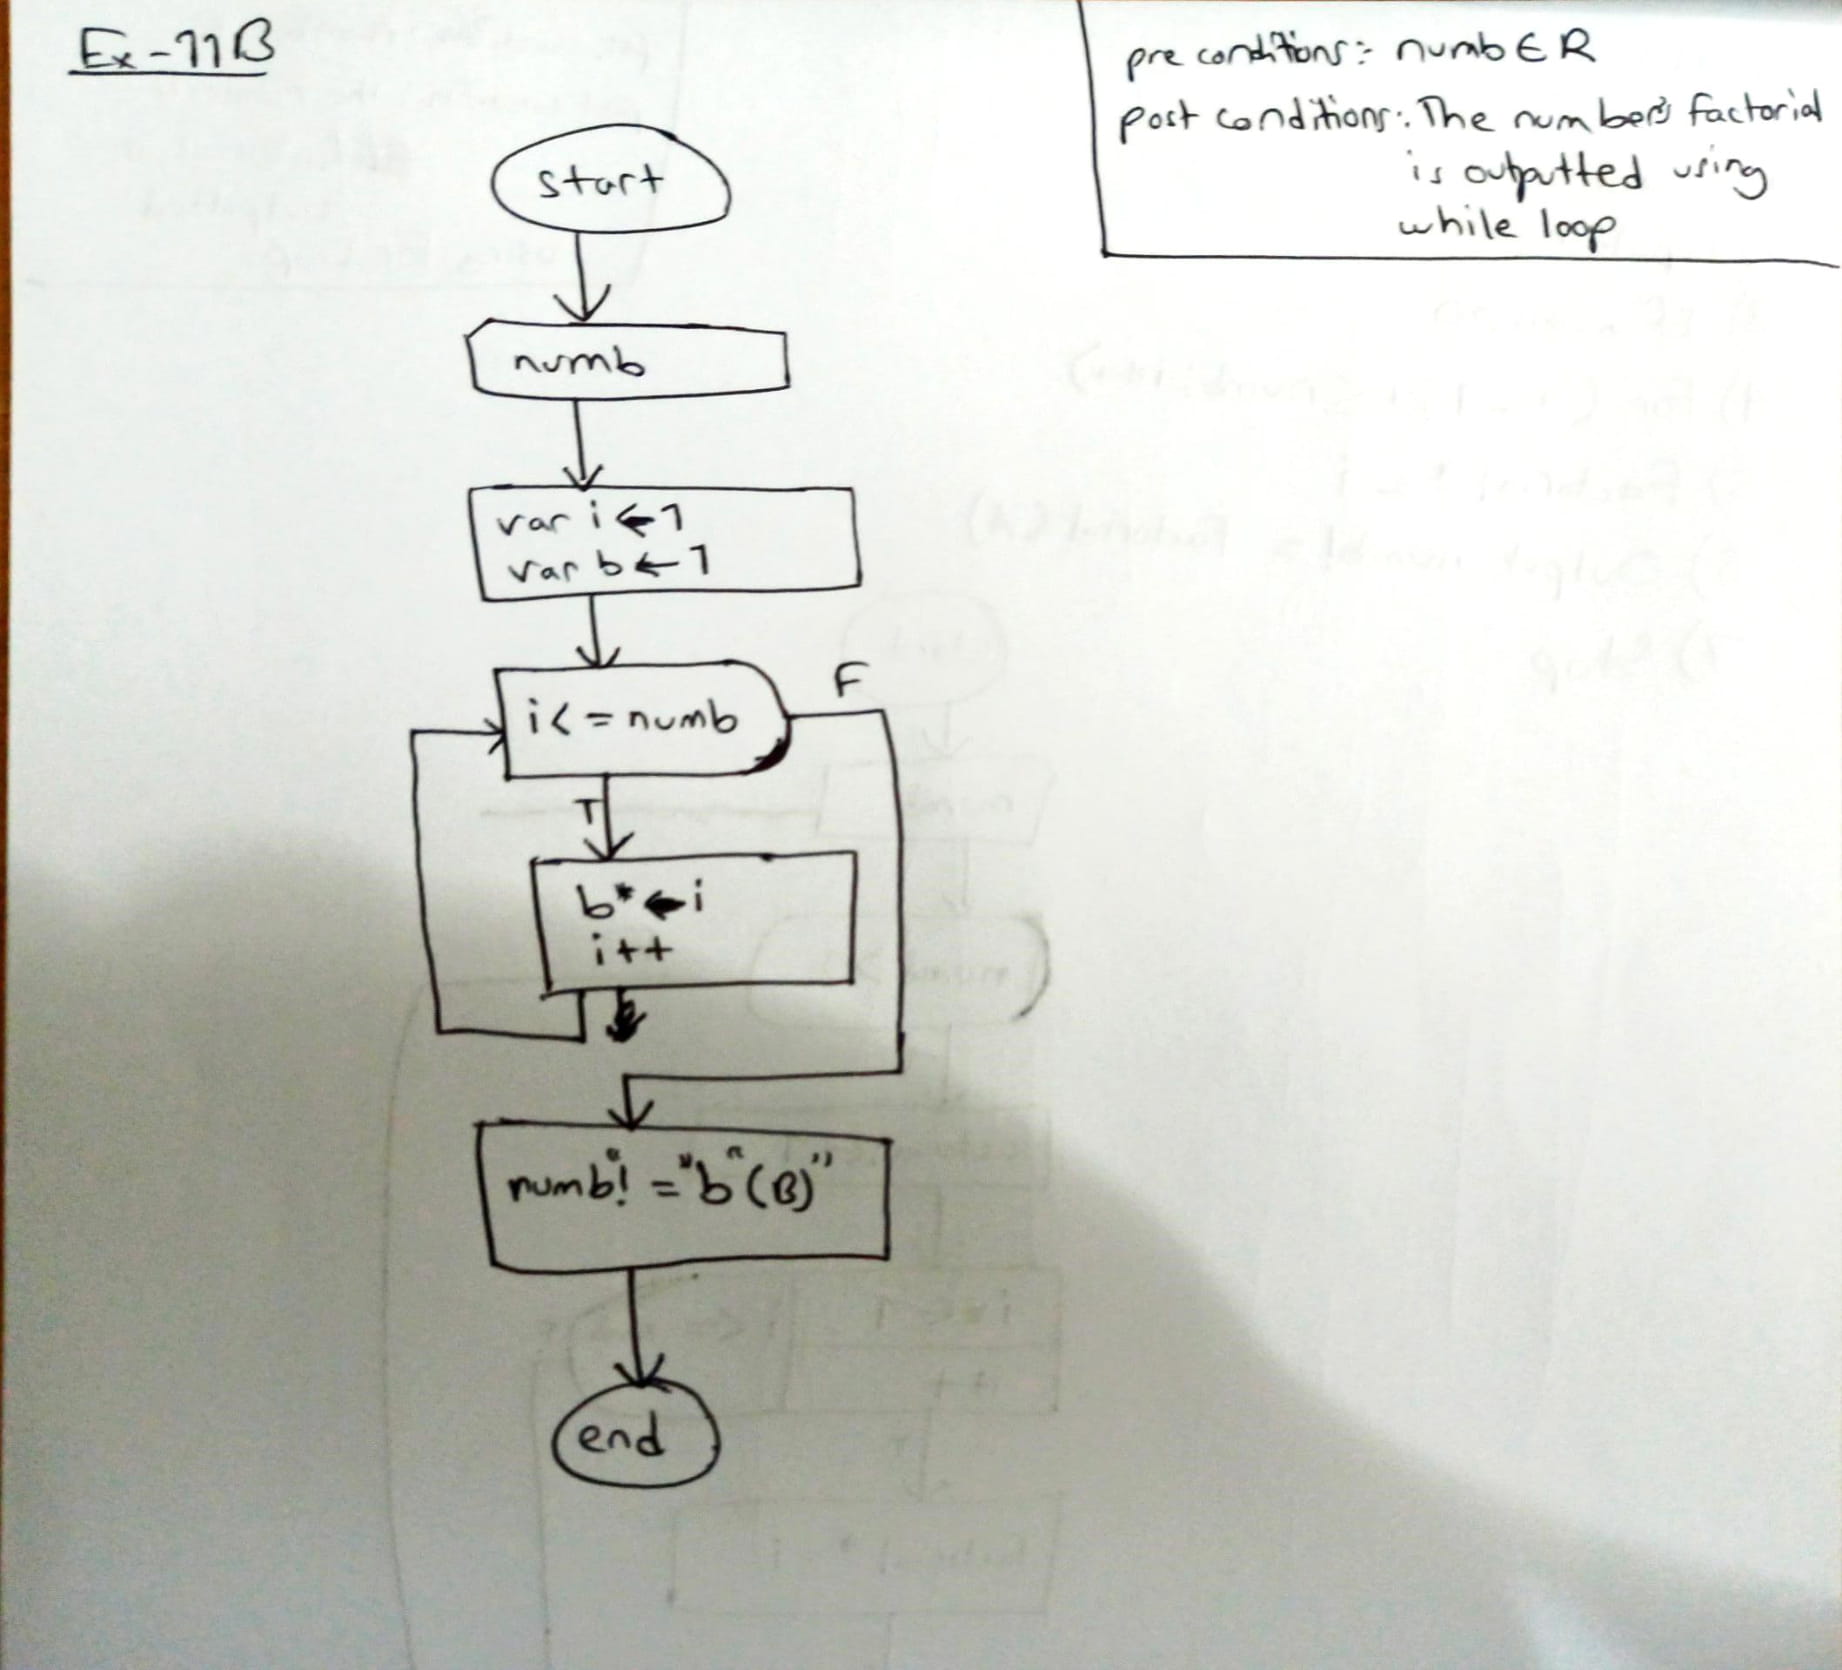 Ex-11B
pre conditions:- numb ∈ R
post conditions:. The number's factorial
is outputted using
while loop
start
numb
var i ← 1
var b ← 1
i < = numb
F
T
b* ← i
i++
numb"! ="b"(B)"
end